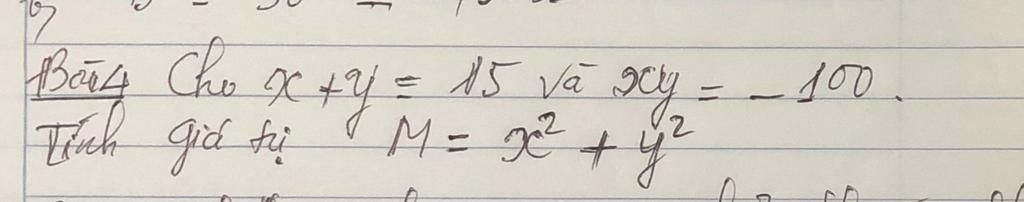 Bài 4 Cho x + y = 15 và xy = -100.
Tính giá trị M = x² + y²